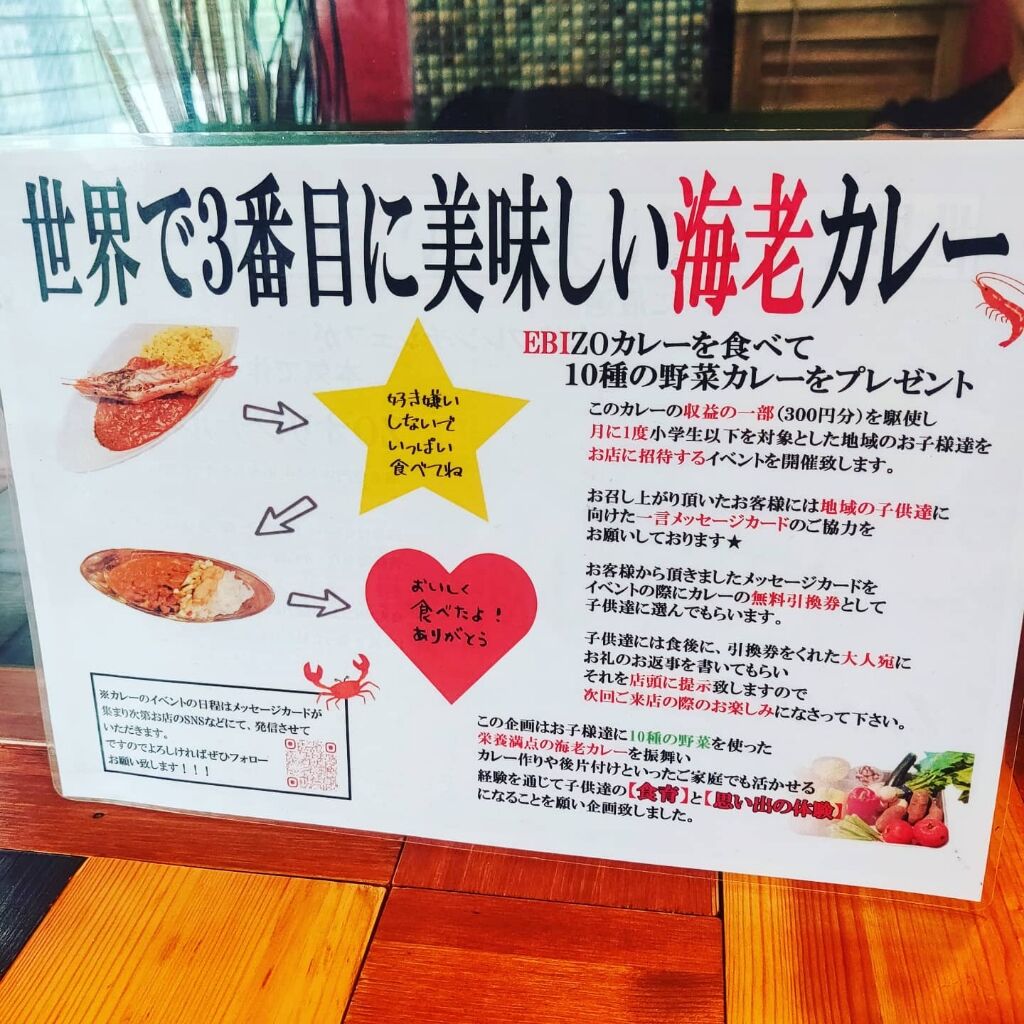 世界で3番目に美味しい海老カレー
EBIZOカレーを食べて
10種の野菜カレーをプレゼント
好き嫌い
しないで
いっぱい
食べてね
このカレーの収益の一部(300円分)を駆使し
月に1度小学生以下を対象とした地域のお子様達を
お店に招待するイベントを開催致します。
お召し上がり頂いたお客様には地域の子供達に
向けた一言メッセージカードのご協力を
お願いしております★
おいしく
食べたよ!
ありがとう
お客様から頂きましたメッセージカードを
イベントの際にカレーの無料引換券として
子供達に選んでもらいます。
子供達には食後に、引換券をくれた大人宛に
お礼のお返事を書いてもらい
それを店頭に提示致しますので
次回ご来店の際のお楽しみになさって下さい。
※カレーのイベントの日程はメッセージカードが
集まり次第お店のSNSなどにて、発信させて
いただきます。
ですのでよろしければぜひフォロー
お願い致します!!!
この企画はお子様達に10種の野菜を使った
栄養満点の海老カレーを振舞い
カレー作りや後片付けといったご家庭でも活かせる
経験を通じて子供達の【食育】と【思い出の体験】
になることを願い企画致しました。